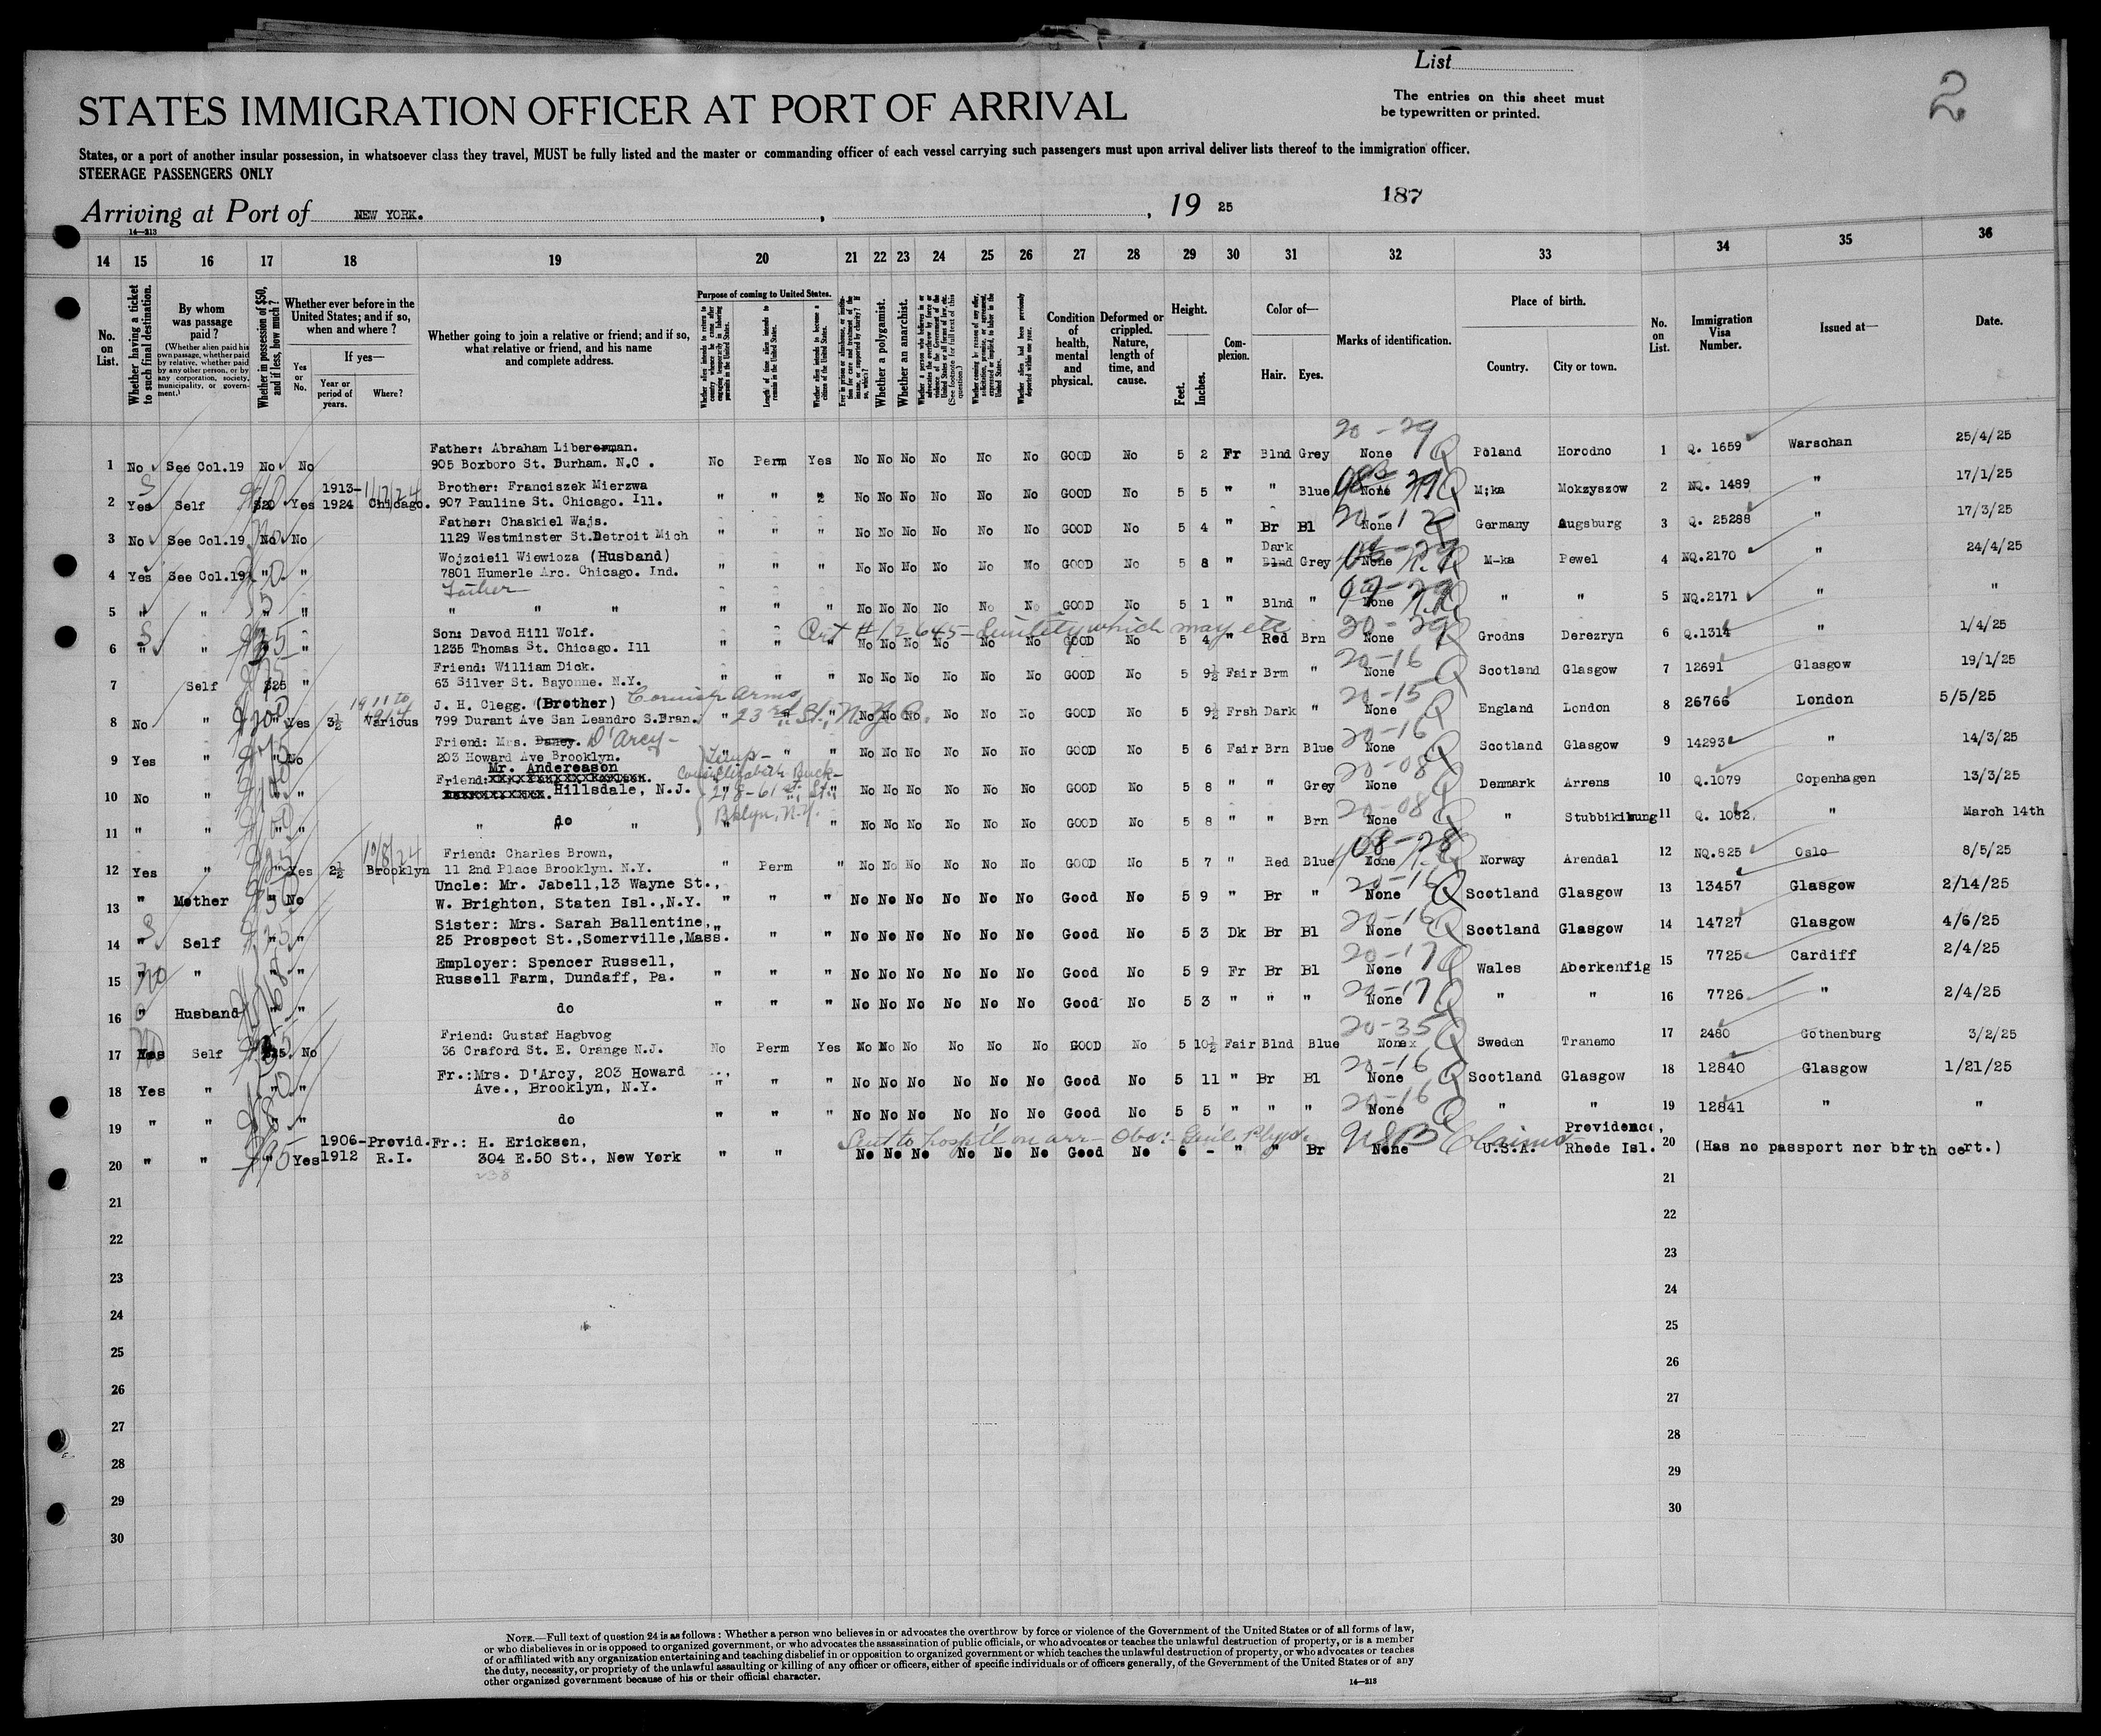 List
2
STATES IMMIGRATION OFFICER AT PORT OF ARRIVAL
The entries on this sheet must
be typewritten or printed.
States, or a port of another insular possession, in whatsoever class they travel, MUST be fully listed and the master or commanding officer of each vessel carrying such passengers must upon arrival deliver lists thereof to the immigration officer.
STEERAGE PASSENGERS ONLY
Arriving at Port of NEW YORK. , , 19 25 187
14—213
14 15 16 17 18 19 20 21 22 23 24 25 26 27 28 29 30 31 32 33 34 35 36
No. on List.
Whether having a ticket to such final destination.
By whom was passage paid?
(Whether alien paid his own passage, whether paid by relative, whether paid by any other person, or by any corporation, society, municipality, or government.)
Whether in possession of $50, and if less, how much?
Whether ever before in the United States; and if so, when and where?
Yes or No.
If yes—
Year or period of years.
Where?
Whether going to join a relative or friend; and if so, what relative or friend, and his name and complete address.
Purpose of coming to United States.
Length of time alien intends to remain in the United States.
Whether alien intends to become a citizen of the United States.
Whether a polygamist.
Whether an anarchist.
Condition of health, mental and physical.
Deformed or crippled. Nature, length of time, and cause.
Height.
Feet. Inches.
Complexion.
Color of—
Hair. Eyes.
Marks of identification.
Place of birth.
Country. City or town.
No. on List.
Immigration Visa Number.
Issued at—
Date.
Father: Abraham Liberman. 20-29
1 No See Col.19 No No 905 Boxboro St. Durham. N.C . No Perm Yes No No No No No No GOOD No 5 2 Fr Blnd Grey None Q Poland Horodno 1 Q. 1659 Warschan 25/4/25
1913- Brother: Franciszek Mierzwa
2 Yes Self $20 Yes 1924 Chicago. 907 Pauline St. Chicago. Ill. " " " No No No No No No GOOD No 5 5 " " Blue None M;ka Mokzyszow 2 NQ. 1489 " 17/1/25
Father: Chaskiel Wajs.
3 No See Col.19 No No 1129 Westminster St.Detroit Mich " " " No No No No No No GOOD No 5 4 " Br Bl None Germany Augsburg 3 Q. 25288 " 17/3/25
Wojzcieil Wiewioza (Husband) Dark
4 Yes See Col.19 " " 7801 Humerle Arc. Chicago. Ind. " " " No No No No No No GOOD No 5 8 " Blnd Grey None M-ka Pewel 4 NQ.2170 " 24/4/25
Father
5 " " " " " " " " " " No No No No No No GOOD No 5 1 " Blnd " None " " 5 NQ.2171 " "
Son: Davod Hill Wolf. Cert # 12645 - Senility which may etc 20-29
6 " " " 1235 Thomas St. Chicago. Ill " " " No No No No No No GOOD No 5 4 " Red Brn None Grodns Derezryn 6 Q.1314 " 1/4/25
Friend: William Dick. 20-16
7 Self $25 " 63 Silver St. Bayonne. N.Y. " " " No No No No No No GOOD No 5 9½ Fair Brm " None Scotland Glasgow 7 12691 Glasgow 19/1/25
J. H. Clegg. (Brother) Cornish Arms 20-15
8 No " " Yes 3½ Various 799 Durant Ave San Leandro S.Fran. " 23rd St., N.Y.C. No No No No No No GOOD No 5 9½ Frsh Dark " None Q England London 8 26766 London 5/5/25
Friend: Mrs. D'Arcy 20-16
9 Yes " " No 203 Howard Ave Brooklyn. " " " No No No No No No GOOD No 5 6 Fair Brn Blue None Q Scotland Glasgow 9 14293 " 14/3/25
Mr. Andereason
Friend: 20-08
10 No " " " Hillsdale, N.J. 278-61st St. " No No No No No No GOOD No 5 8 " " Grey None Denmark Arrens 10 Q.1079 Copenhagen 13/3/25
Bklyn, N.Y. 20-08
11 " " " " " do " " No No No No No No GOOD No 5 8 " " Brn None " 11 Q. 1082. " March 14th
10/8/24 Friend: Charles Brown,
12 Yes " " Yes 2½ Brooklyn 11 2nd Place Brooklyn. N.Y. " Perm " No No No No No No GOOD No 5 7 " Red Blue None Norway Arendal 12 NQ.825 Oslo 8/5/25
Uncle: Mr. Jabell,13 Wayne St., 20-16
13 " Mother " No W. Brighton, Staten Isl.,N.Y. " " " No No No No No No Good No 5 9 " Br " None Q Scotland Glasgow 13 13457 Glasgow 2/14/25
Sister: Mrs. Sarah Ballentine, 20-16
14 " Self " " 25 Prospect St.,Somerville,Mass. " " " No No No No No No Good No 5 3 Dk Br Bl None Q Scotland Glasgow 14 14727 Glasgow 4/6/25
Employer: Spencer Russell, 20-17
15 No " " " Russell Farm, Dundaff, Pa. " " " No No No No No No Good No 5 9 Fr Br Bl None Q Wales Aberkenfig 15 7725 Cardiff 2/4/25
20-17
16 " Husband " " do " " " No No No No No No Good No 5 3 " " " None Q " " 16 7726 " 2/4/25
Friend: Gustaf Hagbvog 20-35
17 Self $25. No 36 Craford St. E. Orange N.J. No Perm Yes No No No No No No GOOD No 5 10½ Fair Blnd Blue None Q Sweden Tranemo 17 2480 Gothenburg 3/2/25
Fr.:Mrs. D'Arcy, 203 Howard 20-16
18 Yes " " " Ave., Brooklyn, N.Y. " " " No No No No No No Good No 5 11 " Br Bl None Q Scotland Glasgow 18 12840 Glasgow 1/21/25
20-16
19 " " " " do " " " No No No No No No Good No 5 5 " " " None Q " " 19 12841 " "
1906- Previd. Fr.: H. Ericksen, Sent to hospital on arr- USB Claims Providence,
20 " " " Yes 1912 R.I. 304 E.50 St., New York " " No No No No No No Good No 6 - " " Br None U.S.A. Rhode Isl. 20 (Has no passport nor birth cert.)
21 21
22 22
23 23
24 24
25 25
26 26
27 27
28 28
29 29
30 30
NOTE.—Full text of question 24 is as follows: Whether a person who believes in or advocates the overthrow by force or violence of the Government of the United States or of all forms of law,
or who disbelieves in or is opposed to organized government, or who advocates the assassination of public officials, or who advocates or teaches the unlawful destruction of property, or is a member
of or affiliated with any organization entertaining and teaching disbelief in or opposition to organized government or which teaches the unlawful destruction of property, or who advocates or teaches
the duty, necessity, or propriety of the unlawful assaulting or killing of any officer or officers, either of specific individuals or of officers generally, of the Government of the United States or of any
other organized government because of his or their official character.
14—213